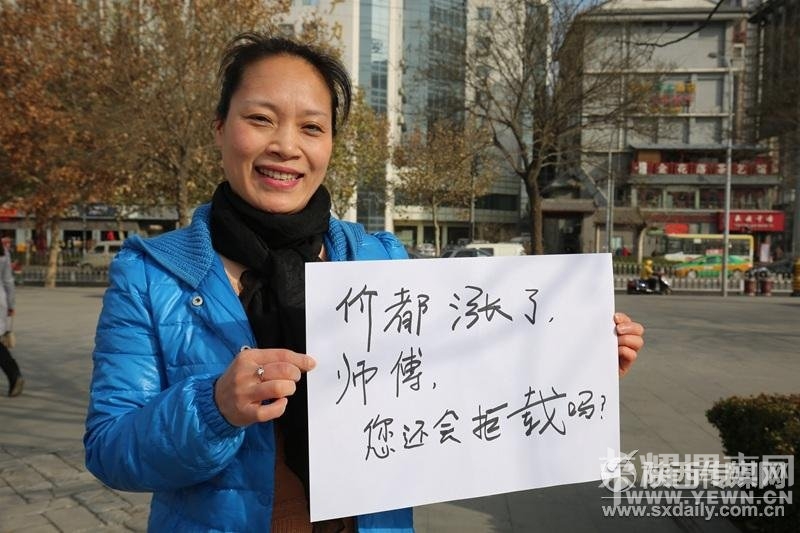 价都涨了,
师傅,
您还会拒载吗?
陕西传媒网
WWW.YEWN.CN
www.sxdaily.com.cn